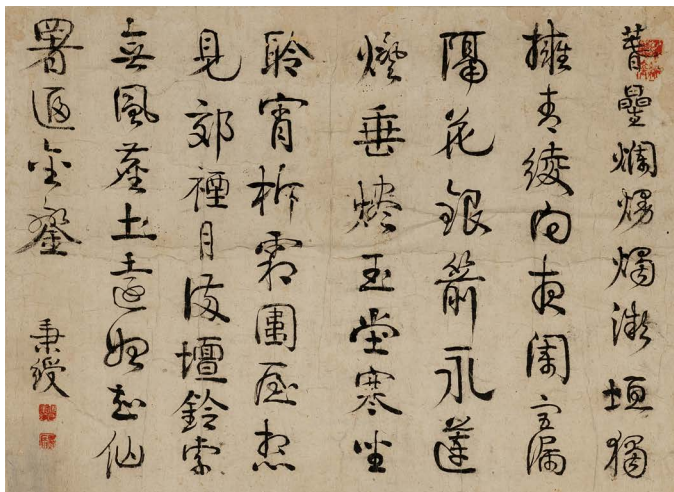 壘爛熳燭微垣獨
擁青綾向夜闌宮漏
隔花銀箭永蓮
燈垂燼玉堂寒坐
聆宵柝霜團屋想
見郊禋月滿壇鈴索
無風塵土遠始知仙
署逼金鑾
秉綬